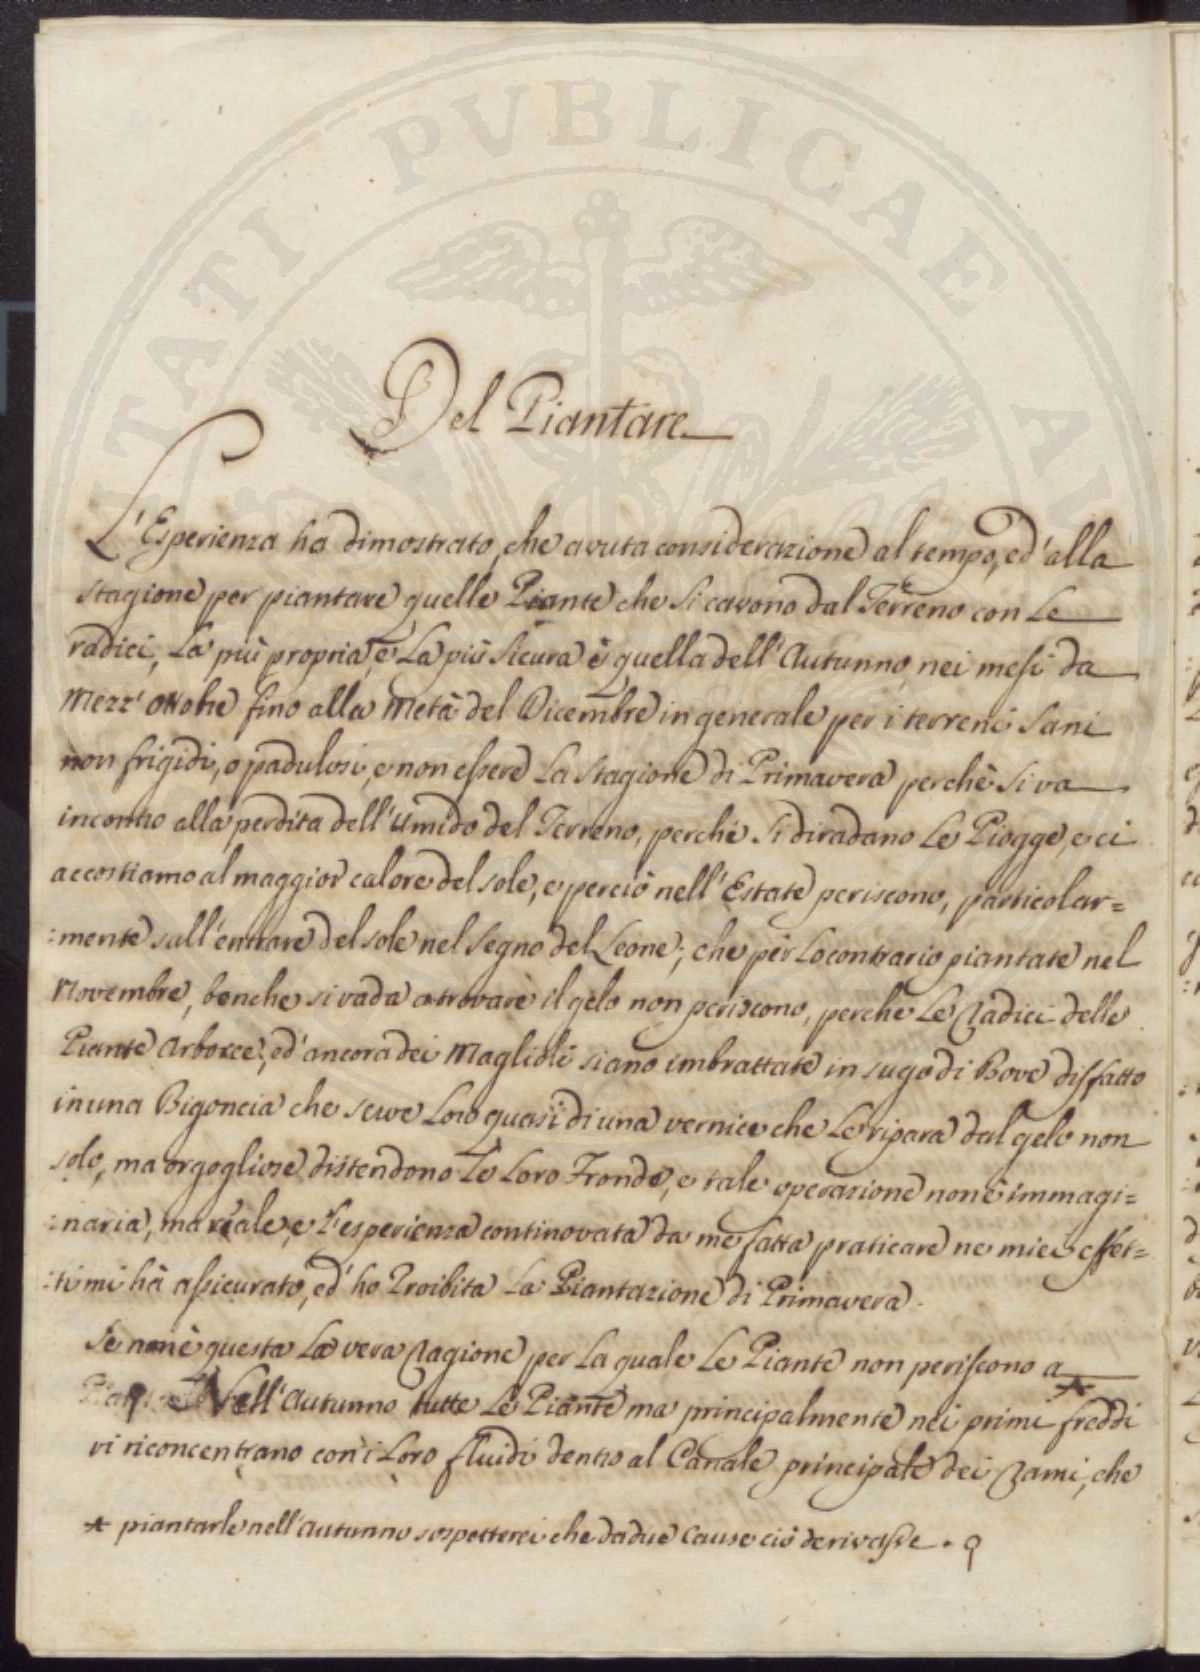 PUBLICAE
Del Piantare
L'Esperienza ha dimostrato, che avuta considerazione al tempo, ed' alla
stagione per piantare quelle Piante che si cavono dal Terreno con Le
radici, La più propria, e La più sicura è quella dell'Autunno, nei mesi da
Mezz' Ottobre fino alla Metà del Dicembre in generale per i terreni sani
non frigidi, o padulosi, e non essere La stagione di Primavera perchè si va
incontro alla perdita dell'Umido del Terreno, perchè si diradano Le Piogge, e ci
accostiamo al maggior calore del sole, e perciò nell'Estate periscono, particolar=
:mente sull'entrare del sole nel segno del Leone; che per Lo contrario piantate nel
Novembre, benche si vada a trovare il gelo non periscono, perche Le Radici delle
Piante Arboree, ed' ancora dei Maglioli siano imbrattate in sugo di Bove disfatto
in una Bigoncia che serve Loro quasi di una vernice che Le ripara dal gelo non
solo, ma orgogliose distendono Le Loro Fronde, e tale operazione non è immagi=
:naria, ma reale, e l'esperienza continovata da me fatta praticare ne miei effet=
:ti mi hà assicurato, ed' ho Proibita La Piantazione di Primavera.
Se non è questa La vera Ragione per La quale Le Piante non periscono a
Nell'Autunno tutte Le Piante ma principalmente nei primi freddi
vi riconcentrano con i Loro fluidi dentro al Canale principale dei Rami, che
* piantarle nell'Autunno sospetterei che da due Cause ciò derivasse.